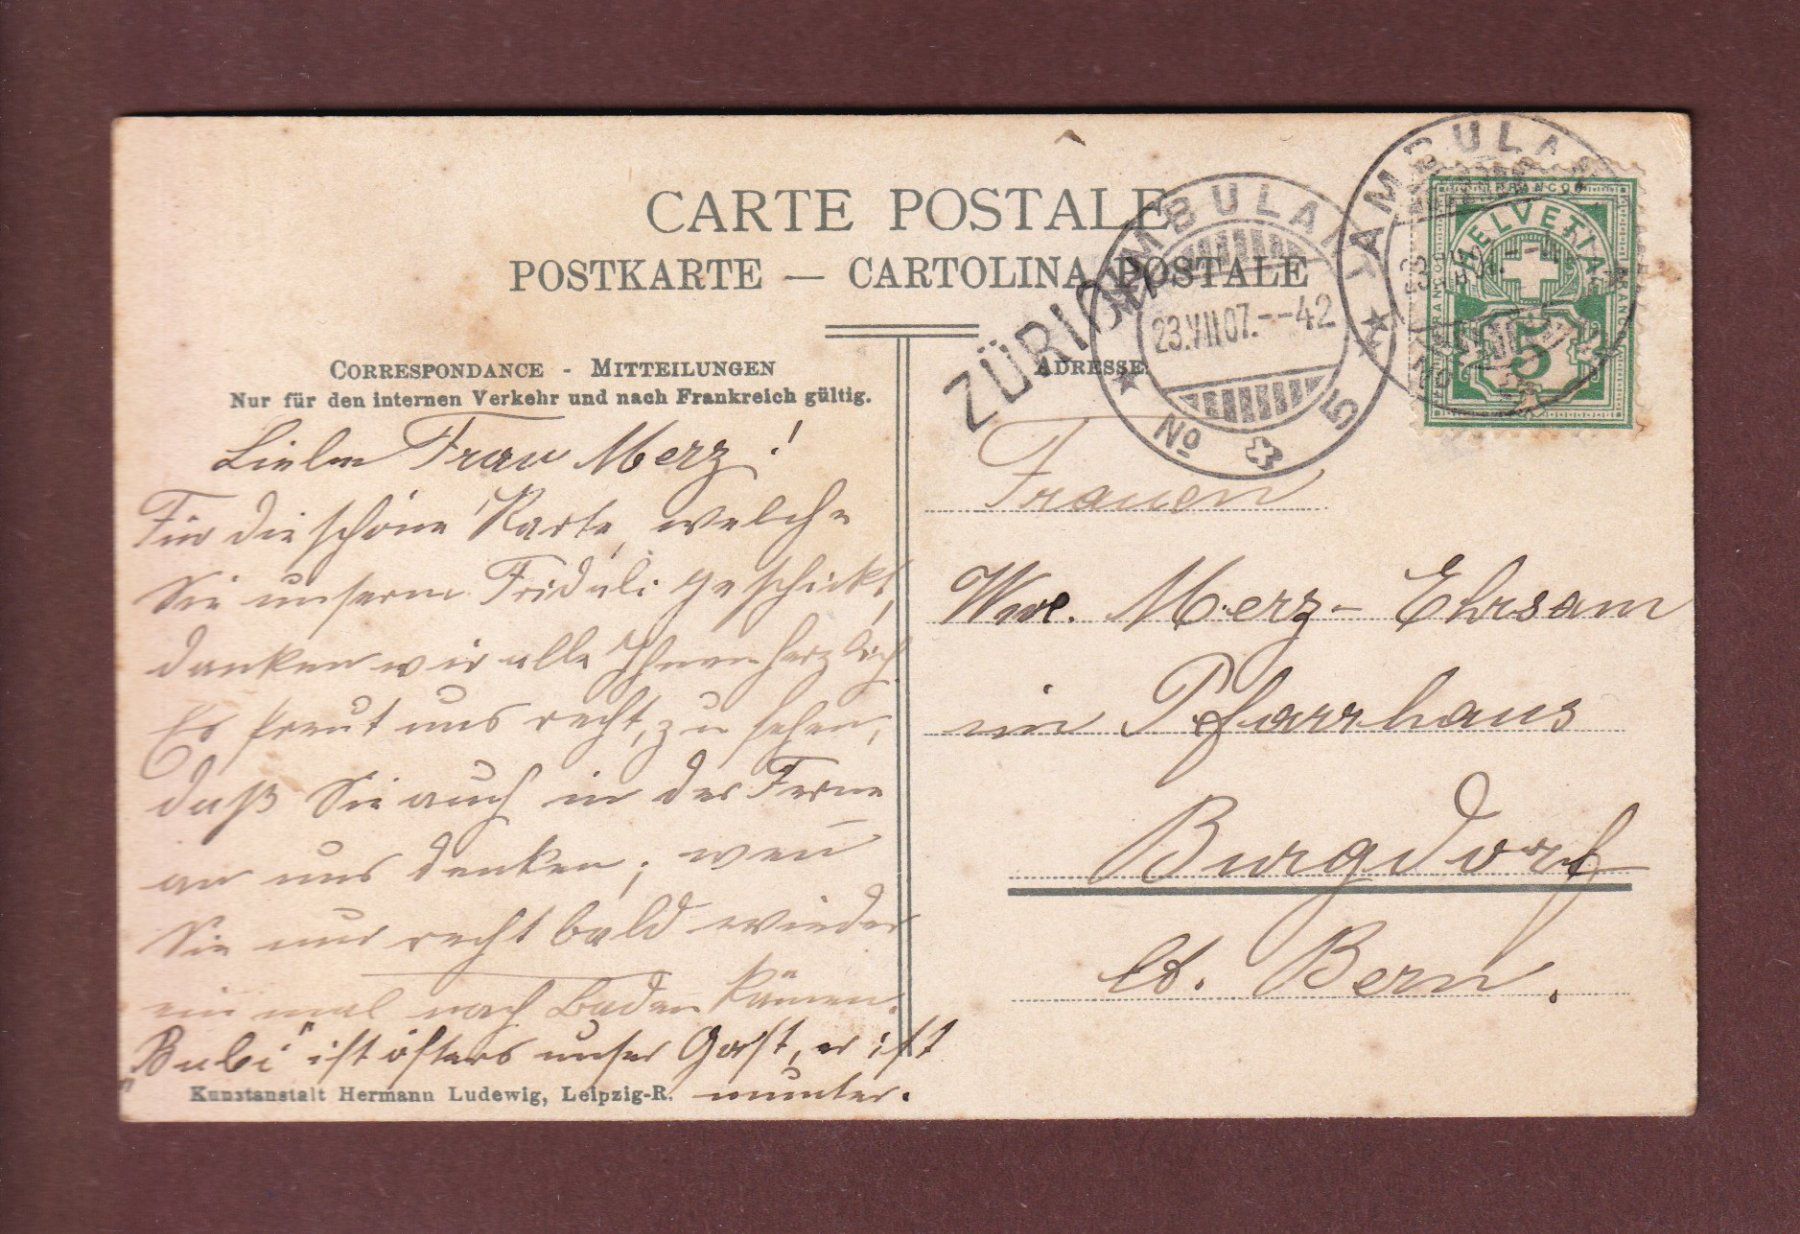 CARTE POSTALE
POSTKARTE — CARTOLINA POSTALE
CORRESPONDANCE - MITTEILUNGEN
Nur für den internen Verkehr und nach Frankreich gültig.
Liebe Frau Merz!
Für die schöne Karte, welche
Sie unserm Friduli geschickt,
danken wir alle Ihnen herzlich.
Es freut uns recht, zu sehen,
daß Sie auch in der Ferne
an uns denken; wen̄
Sie nur recht bald wieder
ein mal nach Baden kämen.
"Bubi" ist öfters unser Gast, er ist
munter.
Kunstanstalt Hermann Ludewig, Leipzig-R.
ADRESSE
ZÜRICH
AMBULANT
23.VII.07.--42
No 5
AMBULANT
FRANCO
HELVETIA
5
Frauen
Wwe. Merz-Ehrsam
im Pfarrhaus
Burgdorf
Ct. Bern.